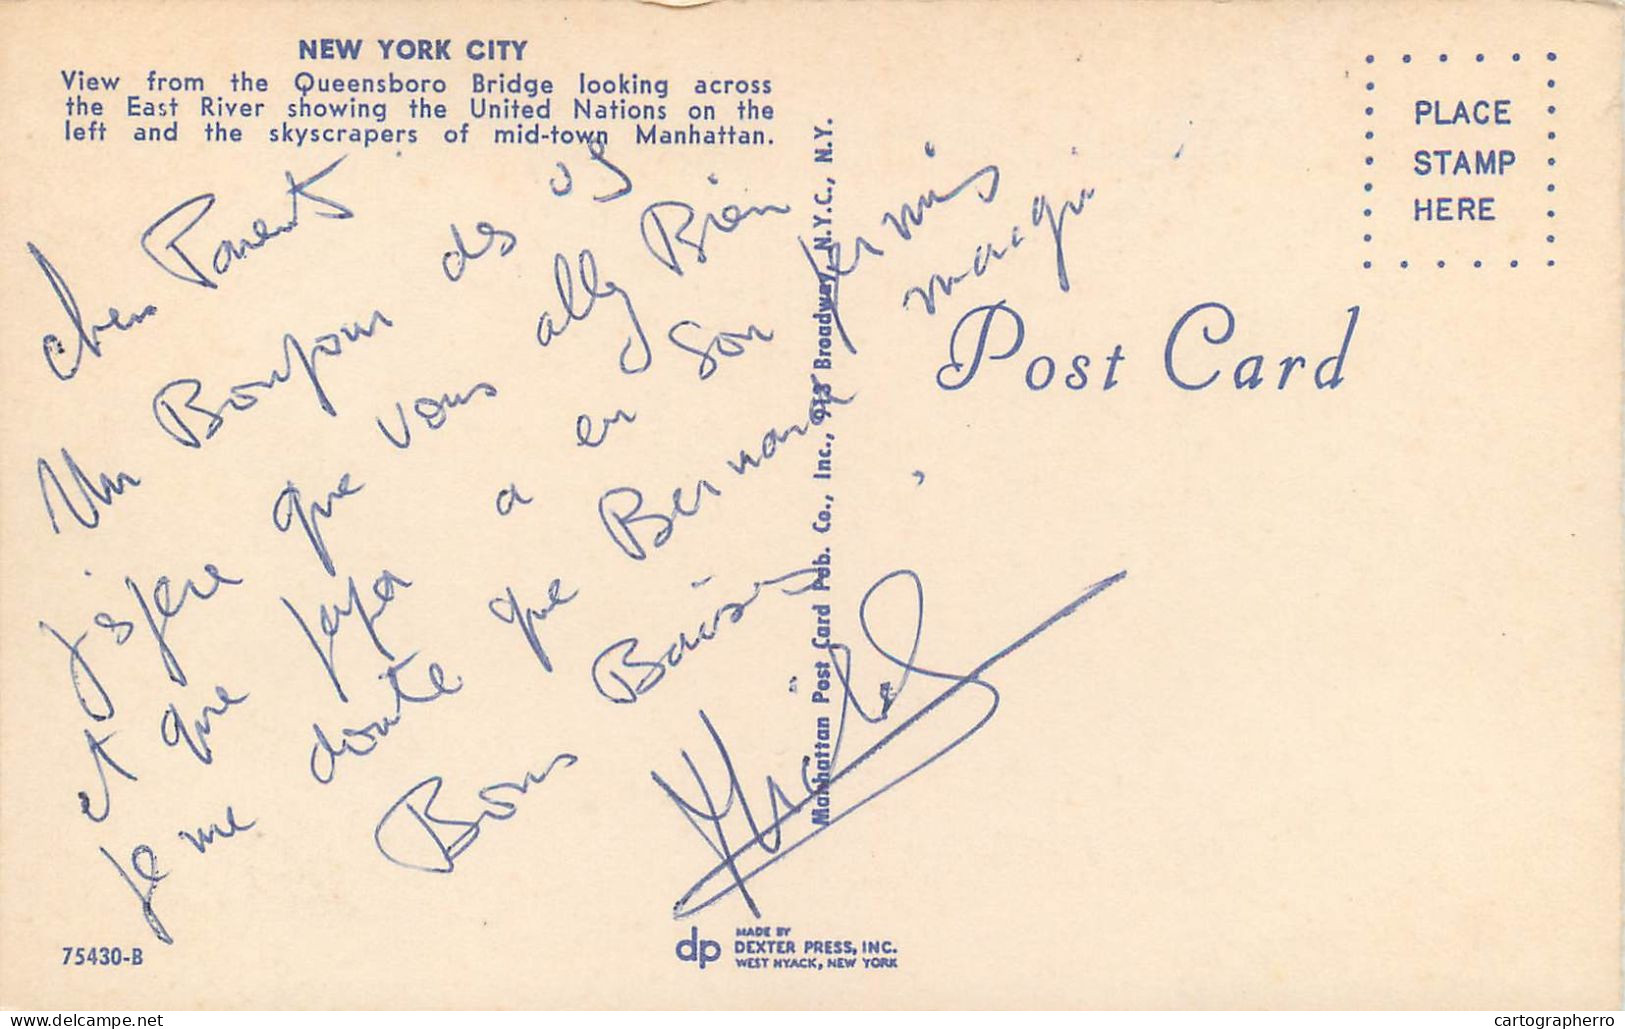 NEW YORK CITY
View from the Queensboro Bridge looking across
the East River showing the United Nations on the
left and the skyscrapers of mid-town Manhattan.
PLACE
STAMP
HERE
Post Card
Cher Parents
Un Bonjour des US
J'spere que vous ally Bien
et que papa a eu son permis
Je me doute que Bernard
Bons Baisers
Michel
Manhattan Post Card Pub. Co., Inc., 913 Broadway, N.Y.C., N.Y.
75430-B
dp
MADE BY
DEXTER PRESS, INC.
WEST NYACK, NEW YORK
delcampe.net
cartographerro